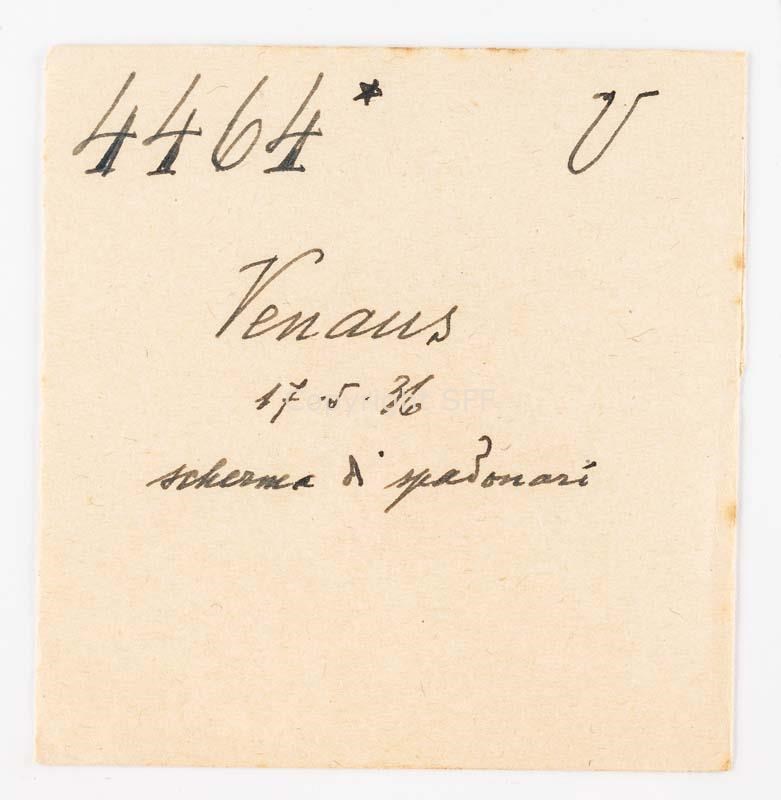 4464* V
Venaus
17·5·36
scherma di spadonari